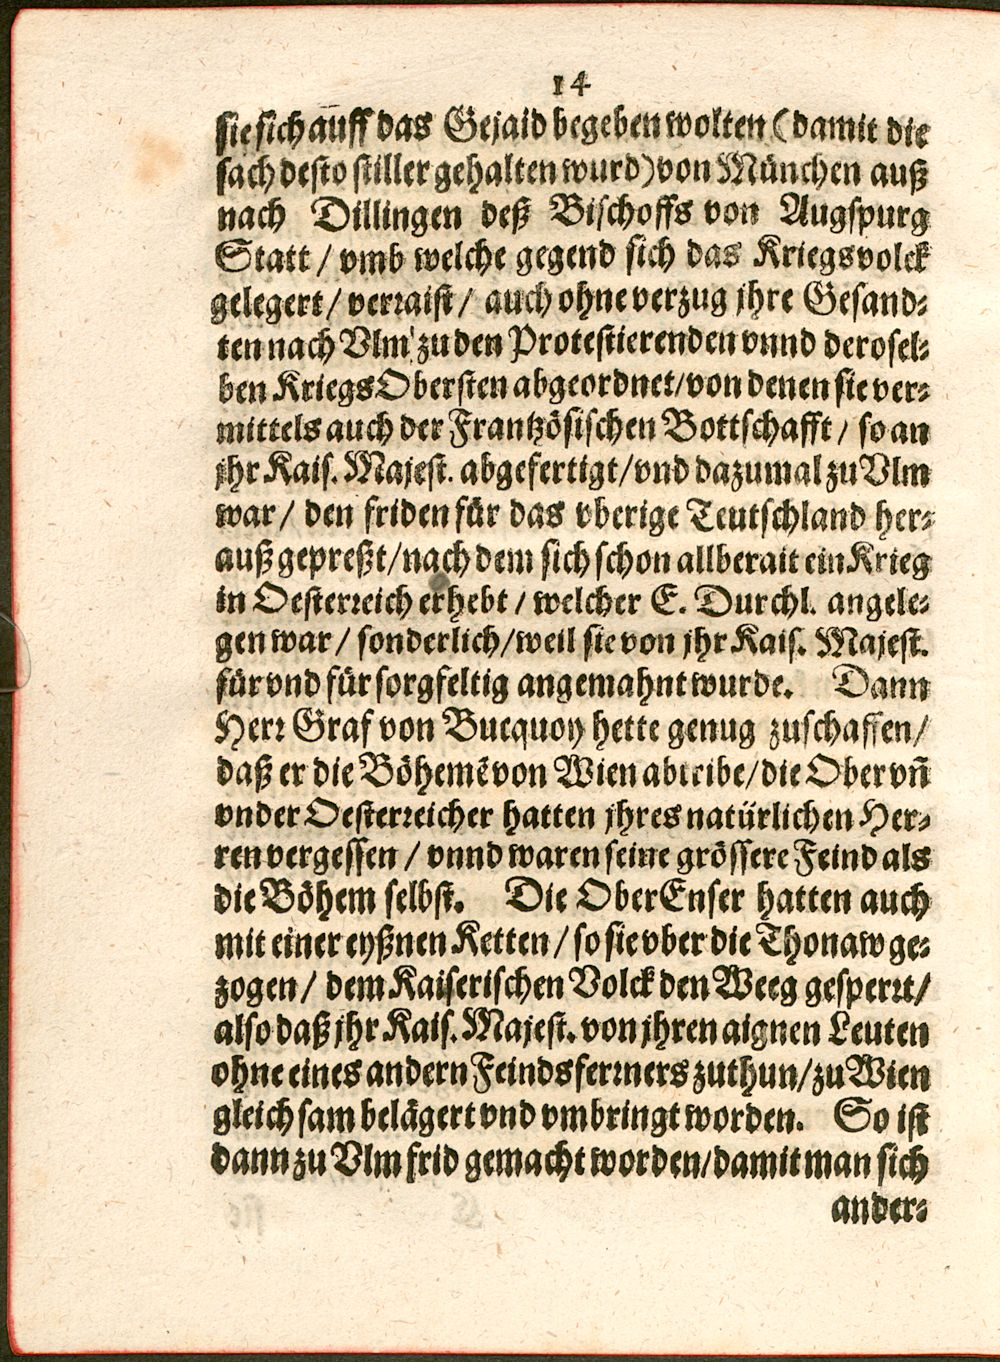 14
sie sich auff das Gejaid begeben wolten (damit die
sach desto stiller gehalten wurd) von München auß
nach Dillingen deß Bischoffs von Augspurg
Statt / vmb welche gegend sich das Kriegsvolck
gelegert / verraist / auch ohne verzug jhre Gesand-
ten nach Vlm zu den Protestierenden vnnd derosel-
ben KriegsObersten abgeordnet / von denen sie ver-
mittels auch der Frantzösischen Bottschafft / so an
jhr Kais. Majest. abgefertigt / vnd dazumal zu Vlm
war / den friden für das vberige Teutschland her-
auß gepreßt / nach dem sich schon allberait ein Krieg
in Oesterreich erhebt / welcher E. Durchl. angele-
gen war / sonderlich / weil sie von jhr Kais. Majest.
für vnd für sorgfeltig angemahnt wurde. Dann
Herr Graf von Bucquoy hette genug zuschaffen /
daß er die Böhemẽ von Wien abtribe / die Ober vñ
vnder Oesterreicher hatten jhres natürlichen Her-
ren vergessen / vnnd waren seine grössere Feind als
die Böhem selbst. Die OberEnser hatten auch
mit einer eyßnen Ketten / so sie vber die Thonaw ge-
zogen / dem Kaiserischen Volck den Weeg gesperrt /
also daß jhr Kais. Majest. von jhren aignen Leuten
ohne eines andern Feinds ferrners zuthun / zu Wien
gleichsam belägert vnd vmbringt worden. So ist
dann zu Vlm frid gemacht worden / damit man sich
ander-